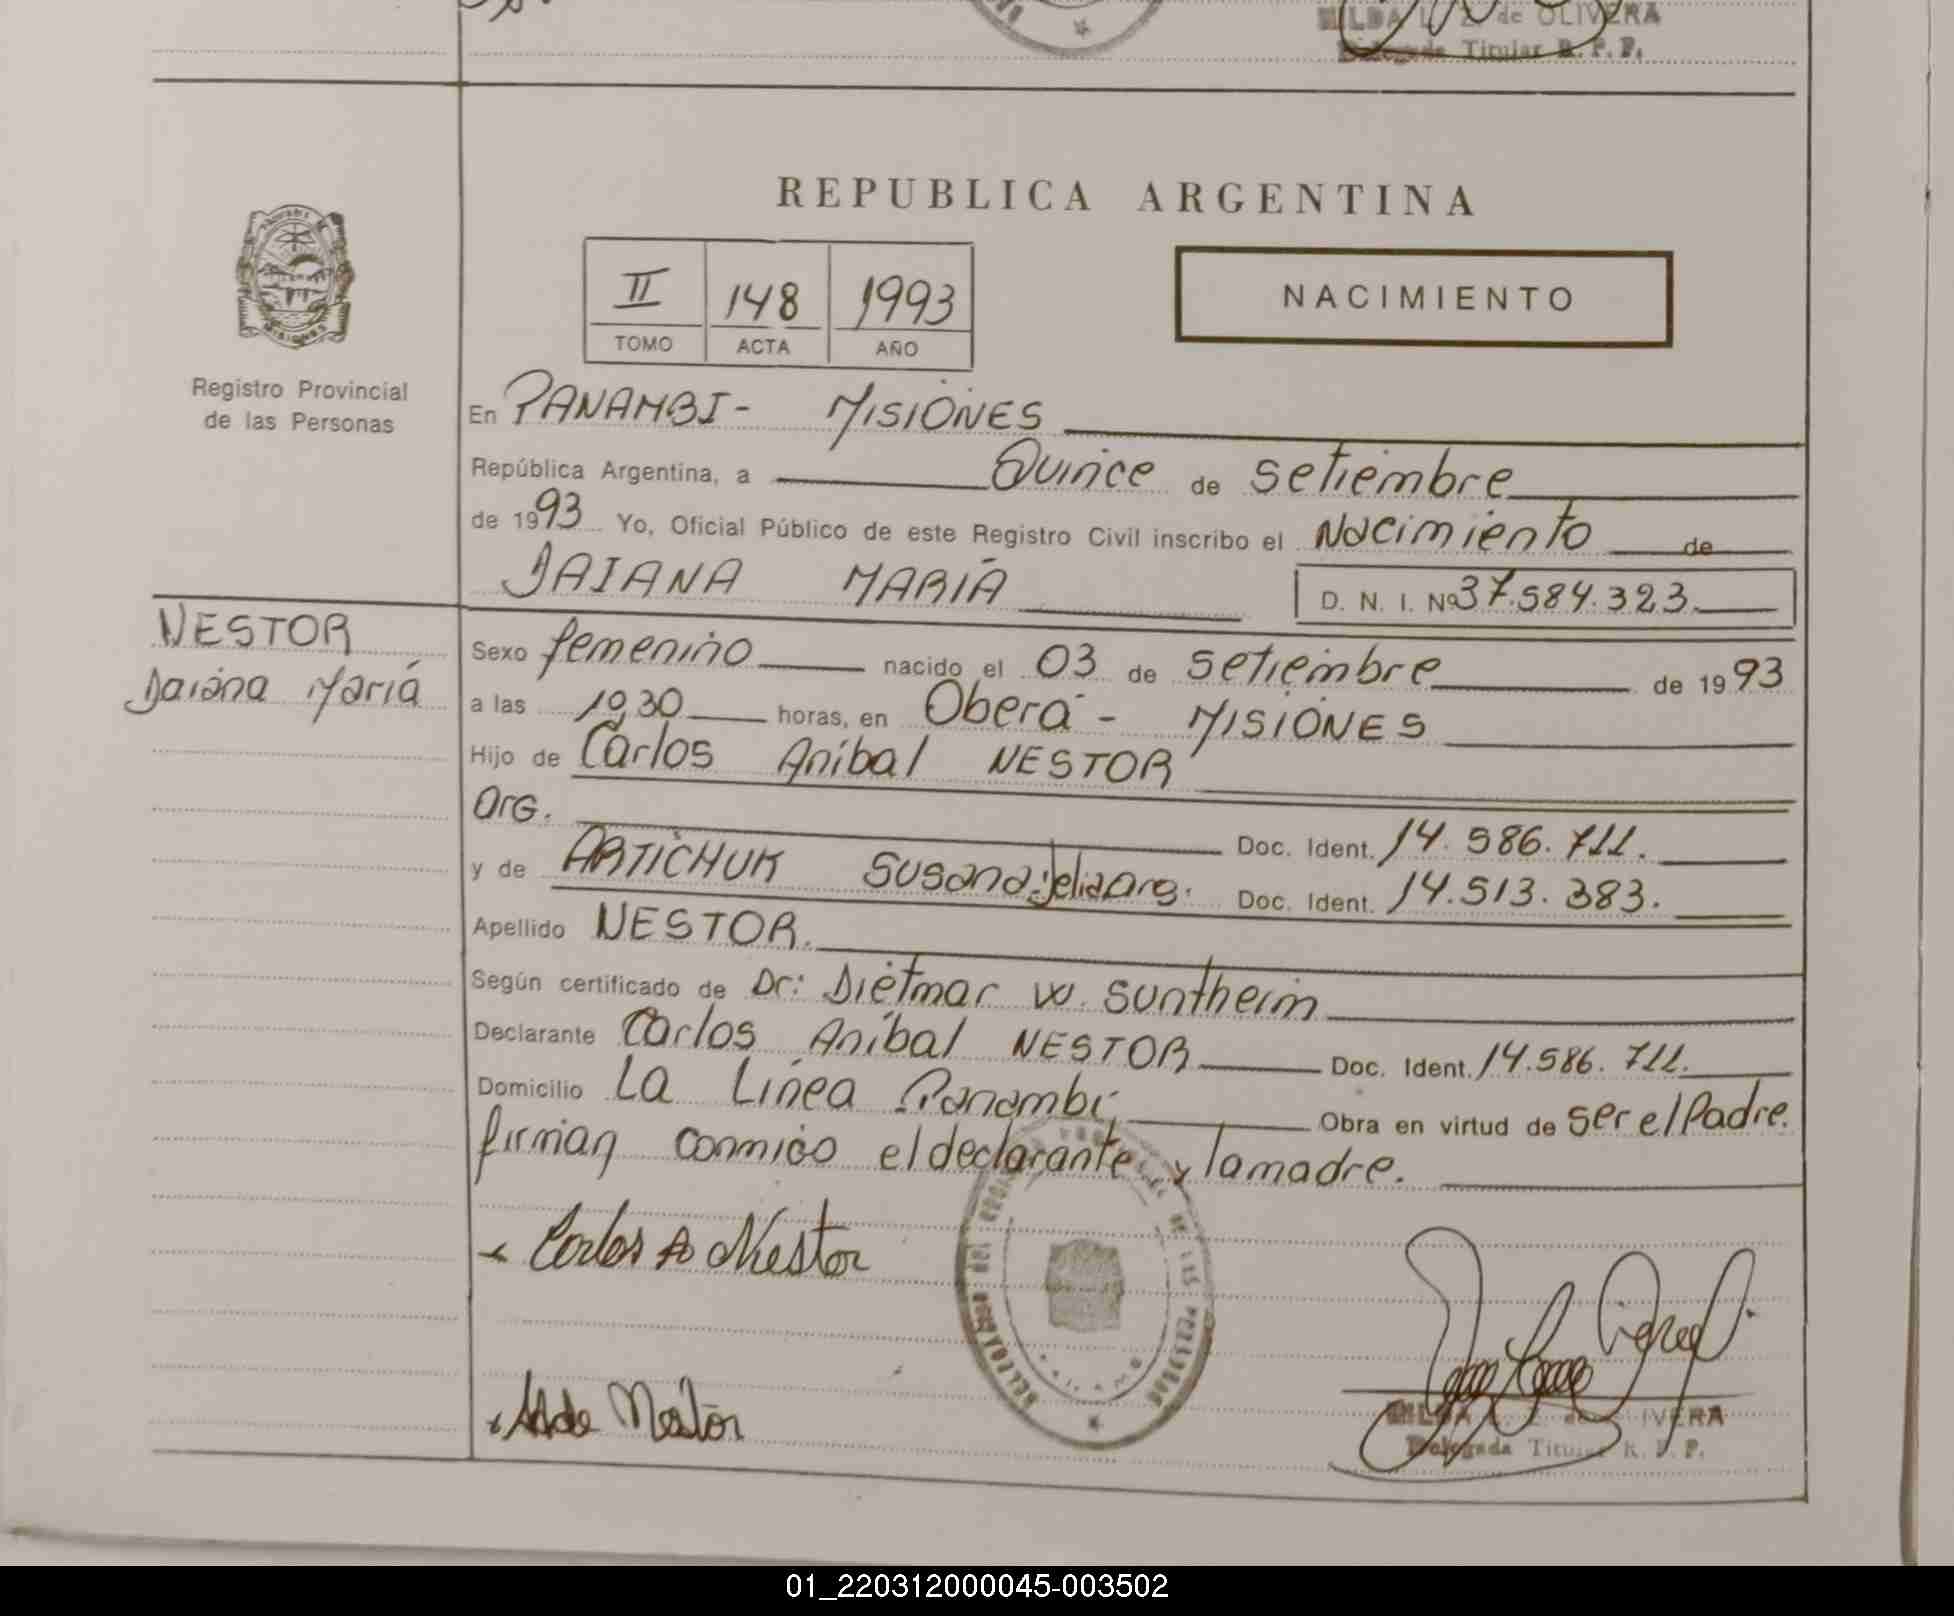 HILDA L. Z. de OLIVERA
Delegada Titular R. P. P.
REPUBLICA ARGENTINA
II 148 1993
TOMO ACTA AÑO
NACIMIENTO
MISIONES
Registro Provincial
de las Personas
En PANAMBI - MISIONES
República Argentina, a Quince de setiembre
de 1993 Yo, Oficial Público de este Registro Civil inscribo el Nacimiento de
DAIANA MARIA D. N. I. Nº 37.584.323.
NESTOR
Daiana María
Sexo femenino nacido el 03 de setiembre de 1993
a las 19,30 horas, en Oberá - MISIONES
Hijo de Carlos Aníbal NESTOR
Arg. Doc. Ident. 14.586.711.
y de ARTICHUK Susana Arg. Doc. Ident. 14.513.383.
Apellido NESTOR.
Según certificado de Dr: Dietmar W. Suntheim
Declarante Carlos Aníbal NESTOR Doc. Ident. 14.586.711.
Domicilio La Línea Panambí Obra en virtud de ser el Padre.
firman conmigo el declarante y la madre.
Carlos A Nestor
DELEGACION DEL REGISTRO PROVINCIAL DE LAS PERSONAS
Nestor
HILDA L. Z. de OLIVERA
Delegada Titular R. P. P.
01_220312000045-003502